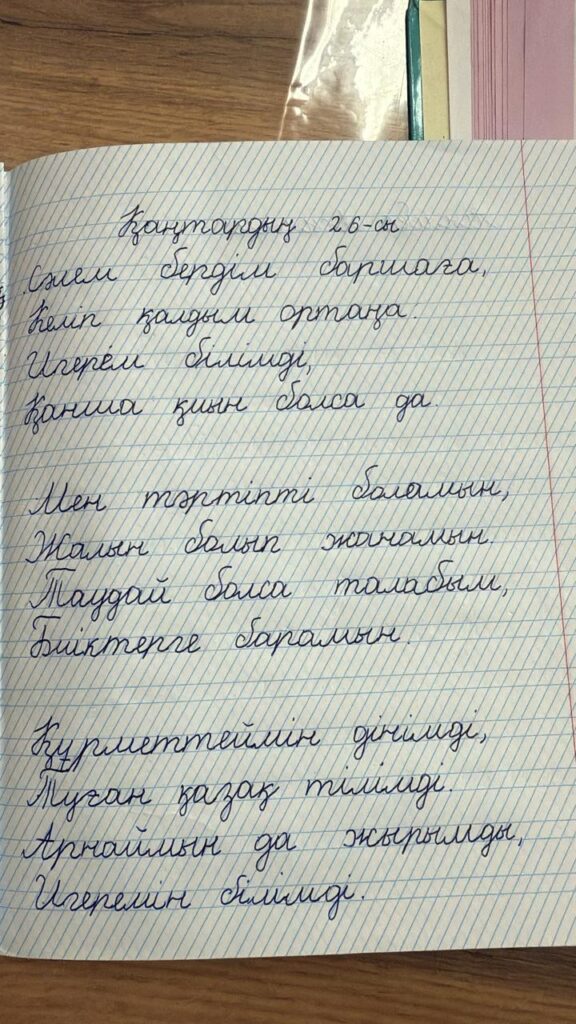 Қаңтардың 26-сы
Сәлем бердім баршаға,
Келіп қалдым ортаңа.
Игерем білімді,
Қанша қиын болса да.
Мен тәртіпті боламын,
Жалын болып жанамын.
Таудай болса талабым,
Биіктерге барамын.
Құрметтеймін дінімді,
Туған қазақ тілімді.
Арнаймын да жырымды,
Игеремін білімді.